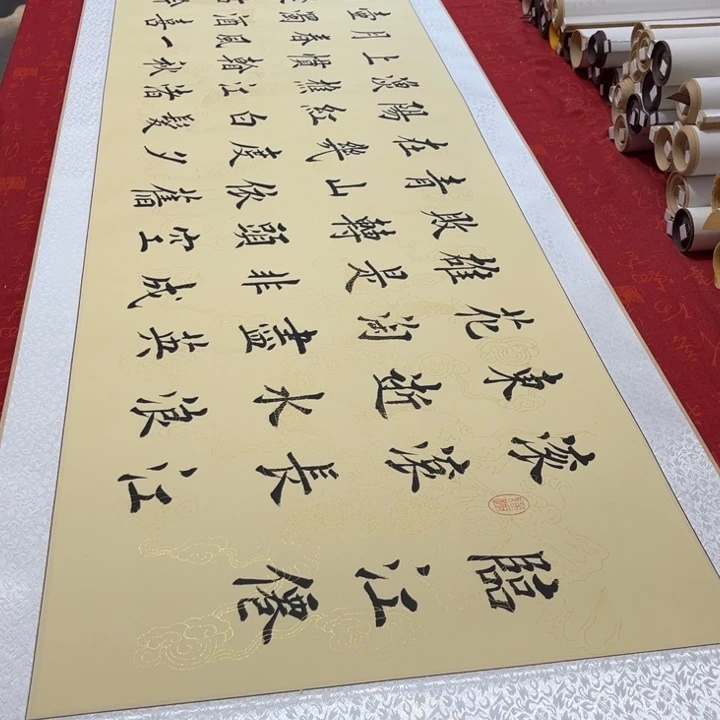 臨江僊
滾滾長江
東逝水浪
花淘盡英
雄是非成
敗轉頭空
青山依舊
在幾度夕
陽紅白髮
漁樵江渚
上慣看秋
月春風一
壺濁酒喜